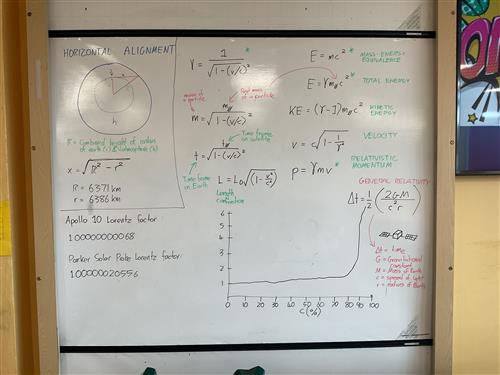 HORIZONTAL ALIGNMENT
R = Combined height of radius
of earth (r) &
x = √R² - r²
R = 6371 km
r = 6386 km
Apollo 10 Lorentz factor
1.00000000068
Parker Solar Probe Lorentz factor:
1.00000020556
γ = 1 / √1-(v/c)² *
mass of
a particle
Rest mass
of a particle
m = m₀ / √1-(v/c)²
Time frame
on satellite
t = t₀ / √1-(v/c)²
Time frame
on Earth
L = L₀√(1 - v²/c²)
E = mc² * MASS-ENERGY
EQUIVALENCE
E = γm₀c² * TOTAL ENERGY
KE = (γ-1)m₀c² KINETIC
ENERGY
v = c√1 - 1/γ² VELOCITY
p = γmv * RELATIVISTIC
MOMENTUM
GENERAL RELATIVITY
Δt = 1/2 (2GM / c²r)
Δt = time
G = Gravitational
constant
M = Mass of Earth
c = speed of light
r = radius of Earth
Length
contraction
6
5
4
3
2
1
0 10 20 30 40 50 60 70 80 90 100
C (%)